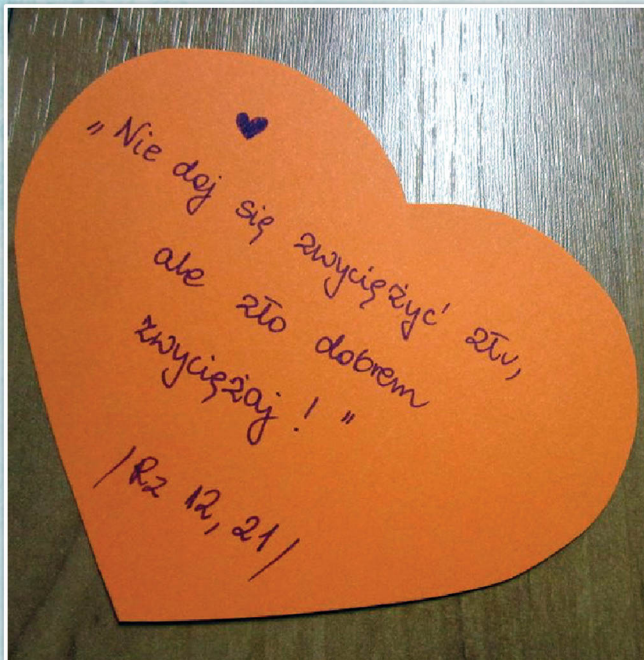 „Nie daj się zwyciężyć złu,
ale zło dobrem
zwyciężaj!"
/Rz 12, 21/